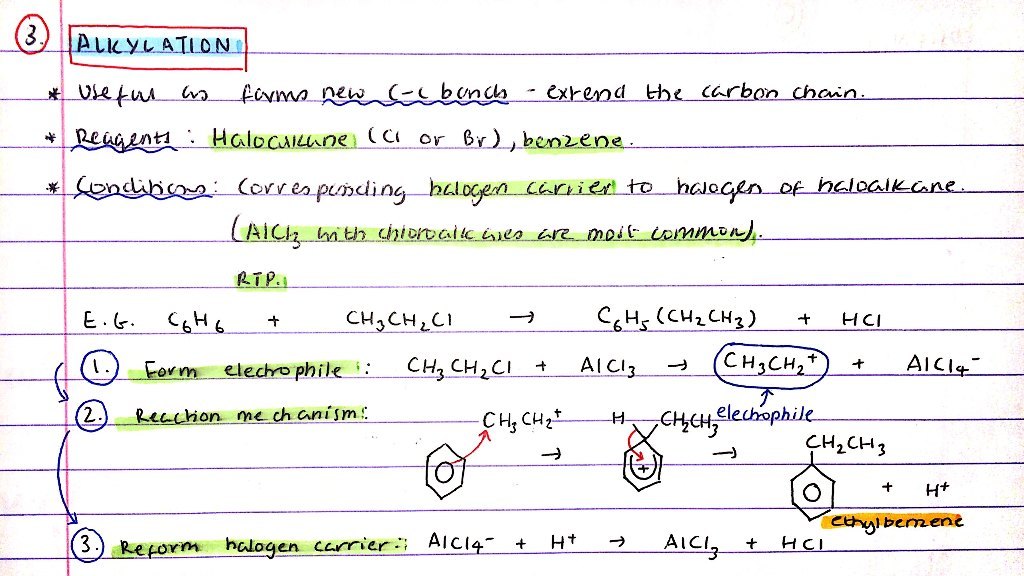 3. ALKYLATION
* Useful as forms new C-C bonds - extend the carbon chain.
* Reagents : Haloalkane (Cl or Br), benzene.
* Conditions: Corresponding halogen carrier to halogen of haloalkane.
(AlCl₃ with chloroalkanes are most common).
RTP.
E.G. C₆H₆ + CH₃CH₂Cl → C₆H₅(CH₂CH₃) + HCl
1. Form electrophile : CH₃CH₂Cl + AlCl₃ → CH₃CH₂⁺ + AlCl₄⁻
electrophile
2. Reaction mechanism:
CH₃CH₂⁺ → H CH₂CH₃ + → CH₂CH₃ + H⁺
ethylbenzene
3. Reform halogen carrier: AlCl₄⁻ + H⁺ → AlCl₃ + HCl